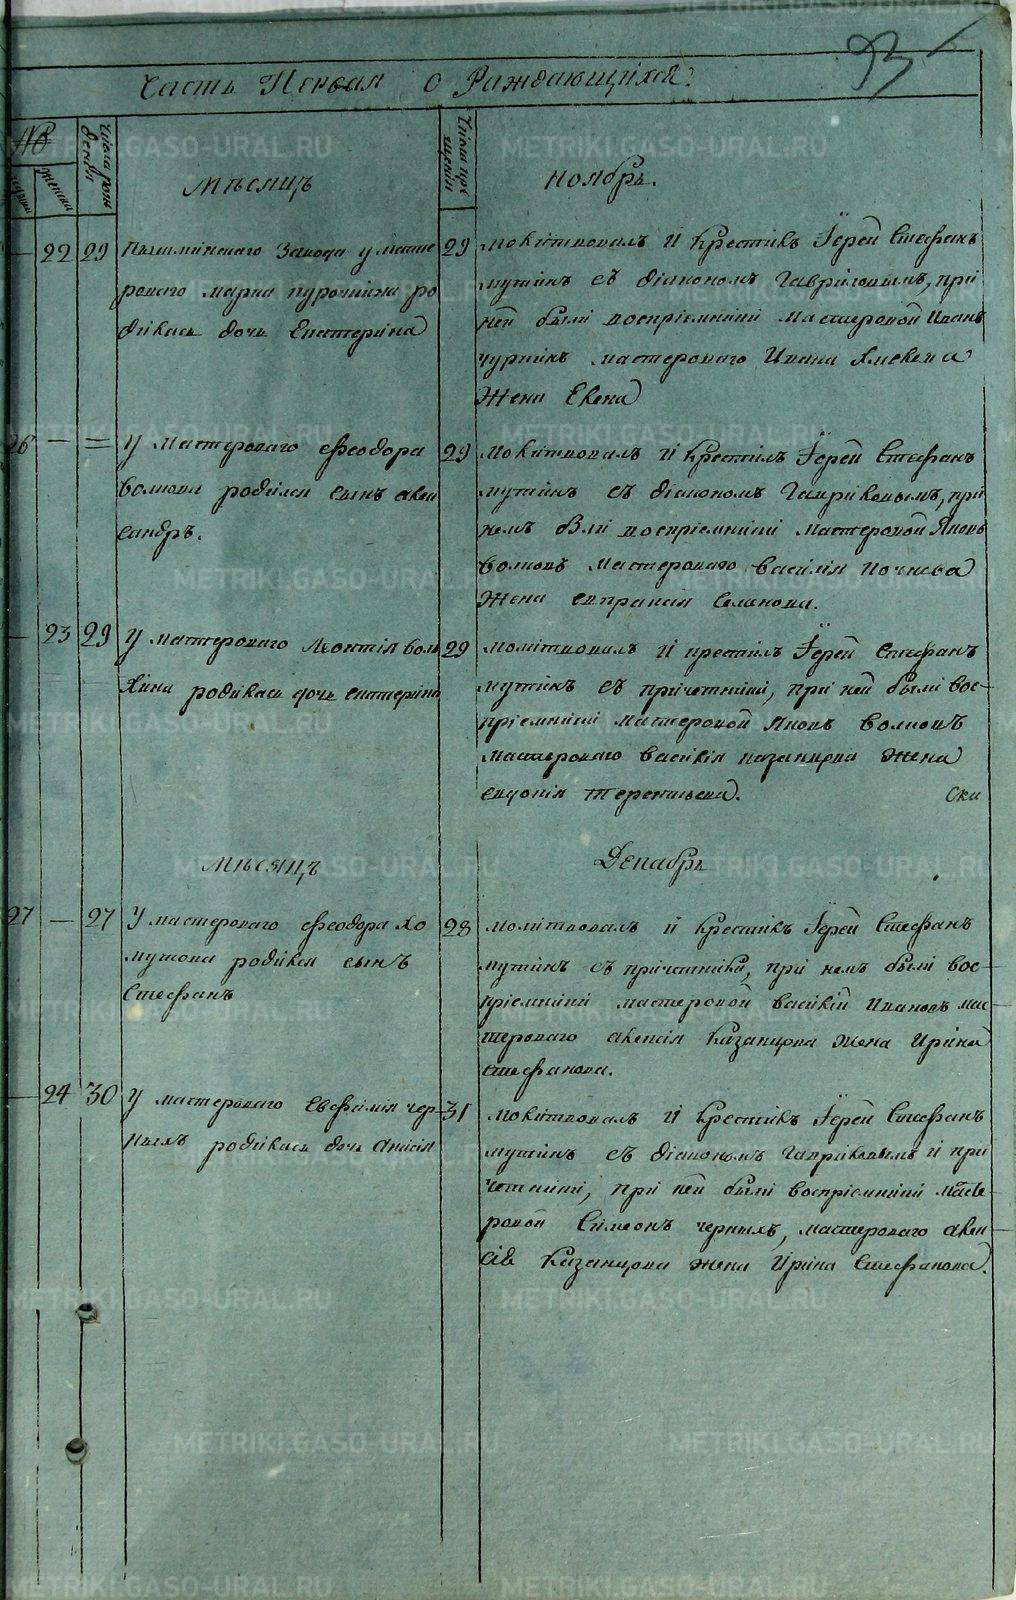 93
Часть Первая о Раждающихся.
№
женска
Числа рож
денiя
Числа кре
щенiя
Мѣсяцъ
Ноябрь.
22 29 Пышминскаго Завода у масте
роваго марка курочкина ро
дилась дочь Екатерина
29 молитвовалъ и крестилъ Iерей Стефанъ
мутинъ съ дiакономъ Гавриловымъ, при
ней были воспрiемники мастеровой Иванъ
мастероваго Ивана
жена Елена
26 — = У мастероваго Феодора
волкова родился сынъ алек
сандръ.
29 молитвовалъ и крестилъ Iерей Стефанъ
мутинъ съ дiакономъ Гавриловымъ, при
немъ были воспрiемники мастеровой Яковъ
волковъ мастероваго василiя
жена евпраксiя семенова.
— 23 29 У мастероваго Леонтiя вол
хина родилась дочь екатерина
29 молитвовалъ и крестилъ Iерей стефанъ
мутинъ съ причетники, при ней были вос-
прiемники мастеровой Яковъ волковъ
мастероваго василiя казанцова жена
евдокiя терентьева.
Мѣсяцъ
Декабрь
27 — 27 У мастероваго феодора хо
мутова родился сынъ
Стефанъ
28 молитвовалъ и крестилъ Iерей Стефанъ
мутинъ съ причетники, при немъ были вос-
прiемники мастеровой василiй Ивановъ мас
тероваго алексiя казанцова жена ирина
стефанова.
— 24 30 У мастероваго Евфимiя чер-
ныхъ родилась дочь анисiя
31 молитвовалъ и крестилъ Iерей Стефанъ
мутинъ съ дiакономъ гавриловымъ и при
четники, при ней были воспрiемники масте-
ровой Симеонъ черныхъ, мастероваго алек
сiя казанцова жена ирина Стефанова.
METRIKI.GASO-URAL.RU